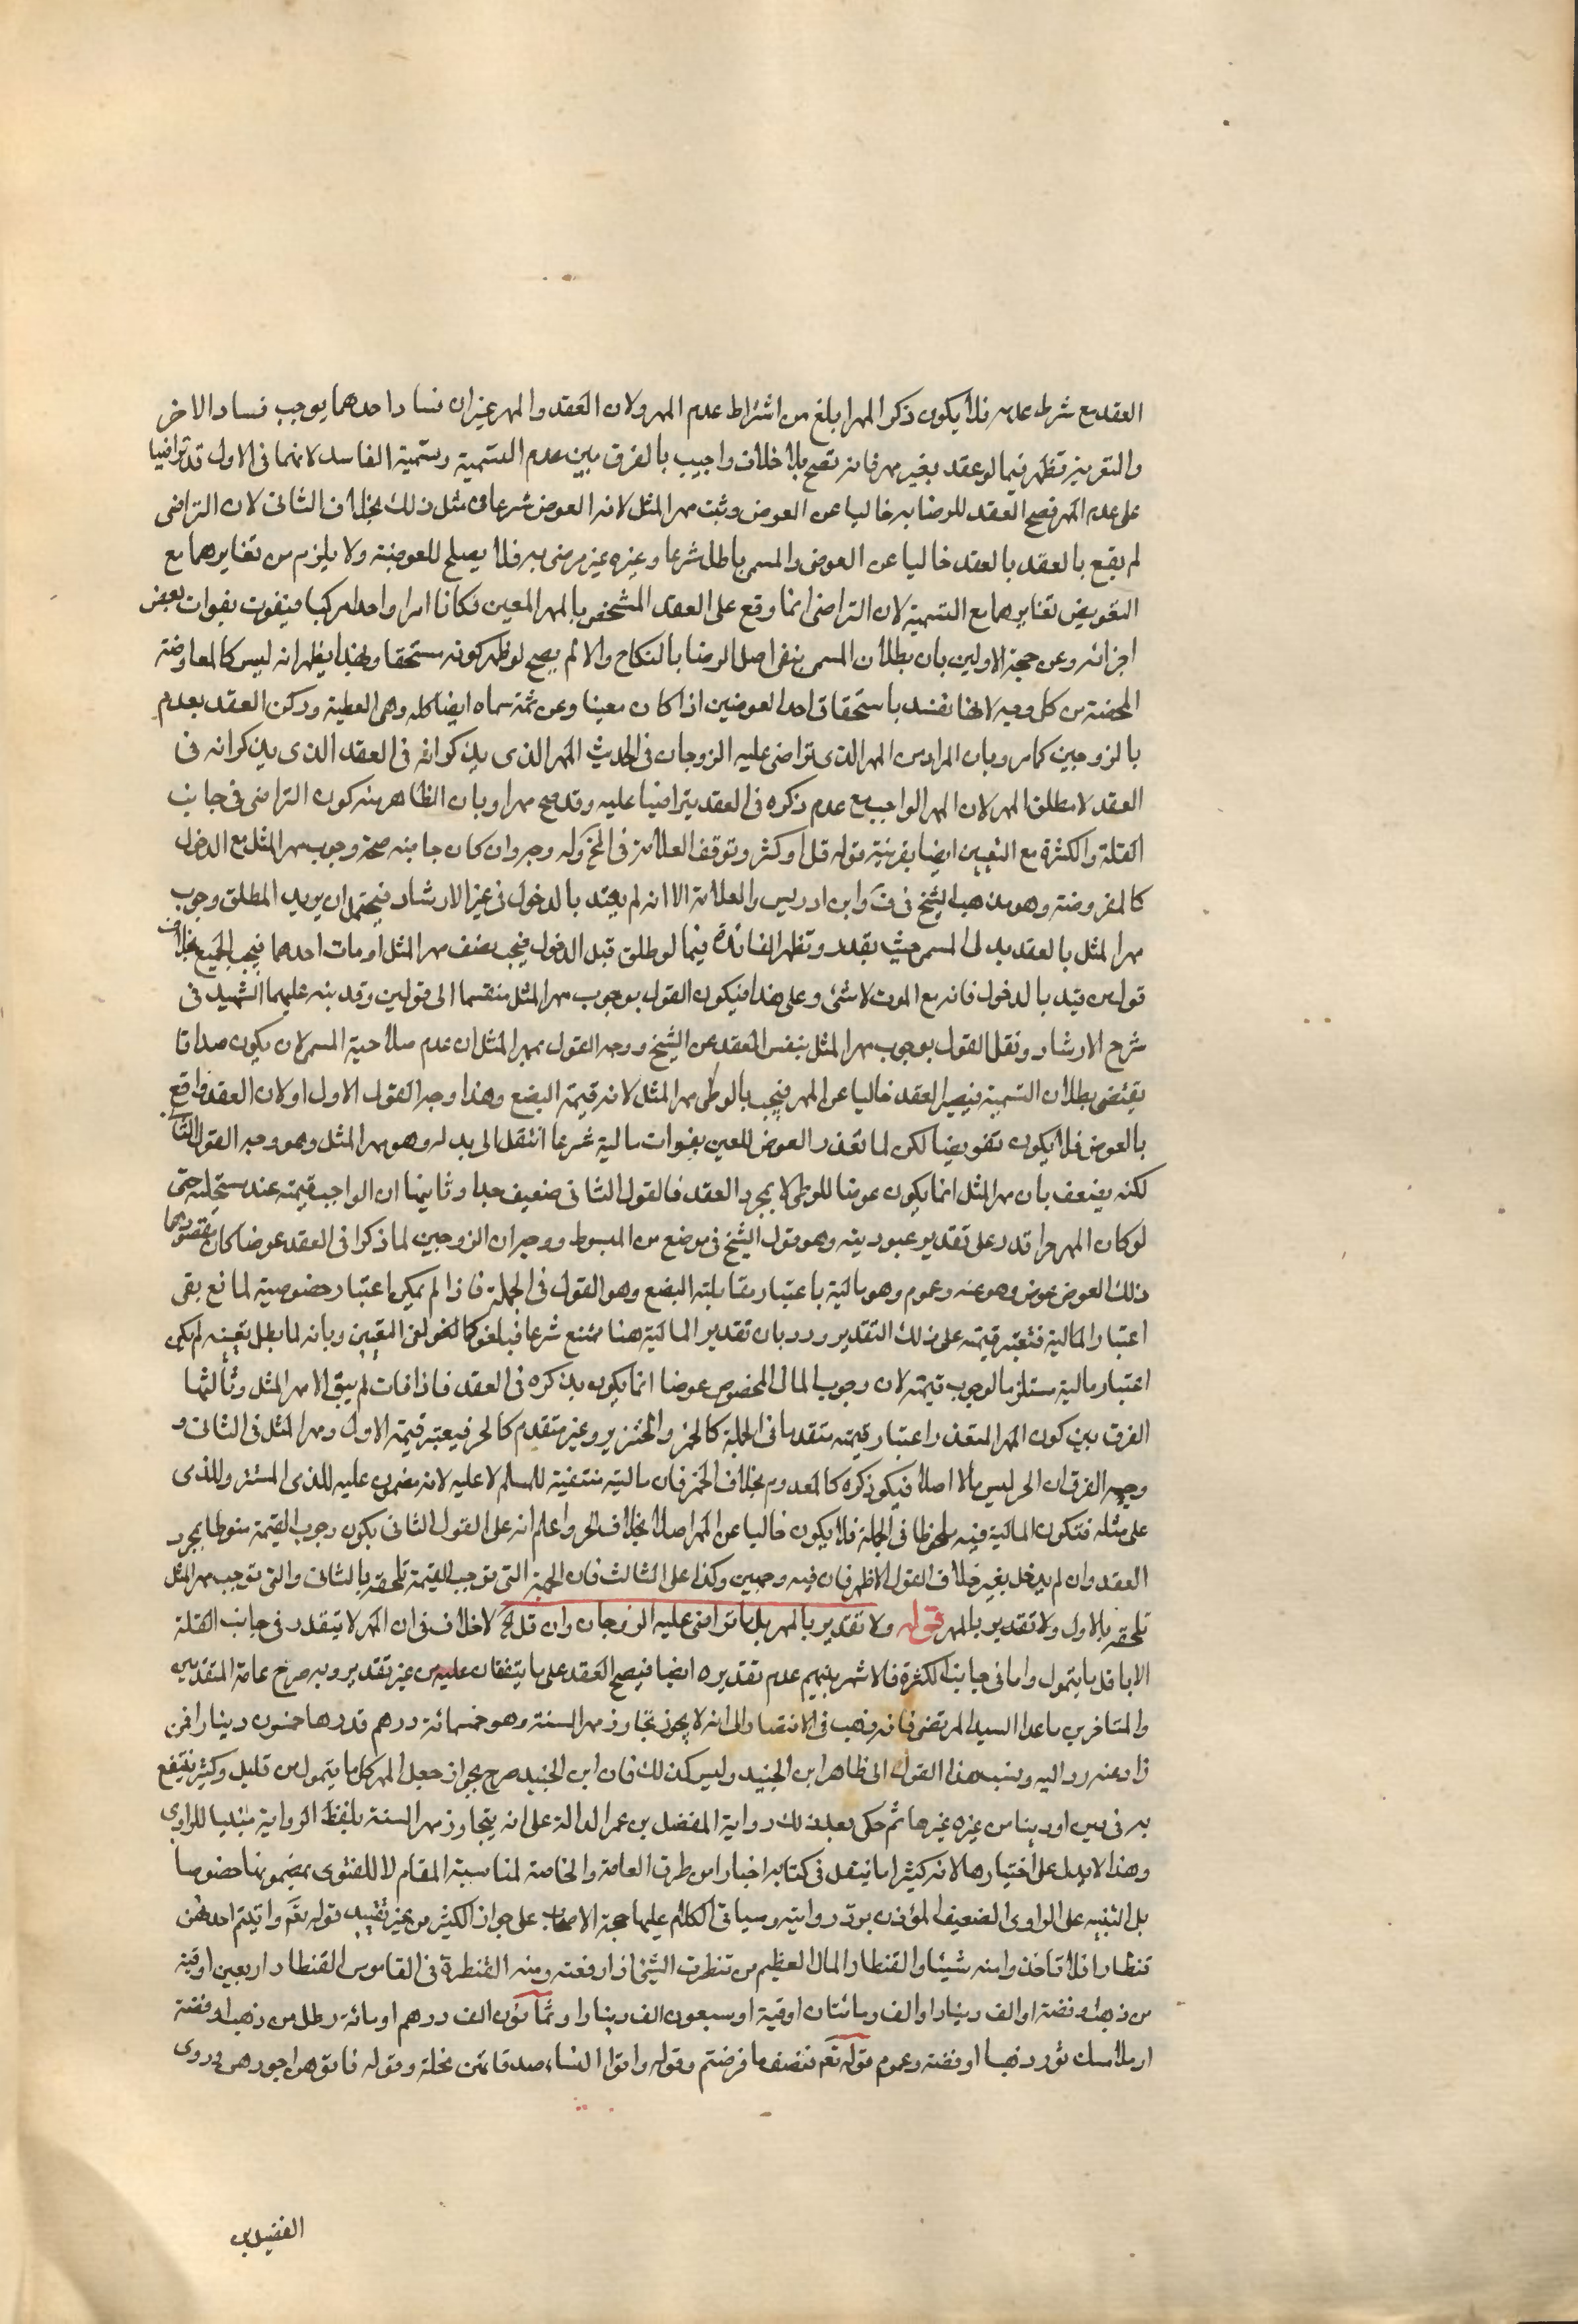 العقد مع شرط عدمه فلا يكون ذكر المهر ابلغ من اشتراط عدم المهر ولان العقد والمهر غيران فساد احدهما يوجب فساد الاخر
والتغرير تظهر فيما لو عقد بغير مهر فانه تصح بلا خلاف واجيب بالفرق بين عدم التسمية وتسمية الفاسد لانهما في الاول قد تراضيا
على عدم المهر فصح العقد للرضا به خاليا عن العوض وثبت مهر المثل لانه العوض شرعا في مثل ذلك بخلاف الثاني لان التراضى
لم يقع بالعقد بالعقد خاليا عن العوض والمسمى باطل شرعا وغيره غير مرضى به فلا يصلح للعوضية ولا يلزم من تغايرهما مع
التفويض تغايرهما مع التسمية لان التراضى انما وقع على العقد المشخص بالمهر المعين فكانا امرا واحدا مركبا فيفوت بفوات بعض
اجزائه وعن حجة الاولين بان بطلان المسمى بنفى اصل الرضا بالنكاح والا لم يصح لو ظهر كونه مستحقا وبهذا يظهر انه ليس كالمعاوضة
المحضة من كل وجه لانها تفسد باستحقاق احد العوضين اذا كان معينا وعن ثمة سماه ايضا كله وهى العطية وركن العقد بعدم
بالزوجين كما مر وبان المراد من المهر الذى يتراضى عليه الزوجان في الحديث المهر الذى يذكرانه في العقد الذى يذكرانه في
العقد لا مطلق المهر لان المهر الواجب مع عدم ذكره في العقد يتراضيا عليه وقد صح مهرا وبان الظاهر منه كون التراضى في جانب
القلة والكثرة مع التعيين ايضا بقرينة قوله قل او كثر وتوقف العلامة في المخ وله وجه وان كان جانبه صحة وجوب مهر المثل مع الدخول
كالمفروضة وهو مذهب الشيخ في ف وابن ادريس والعلامة الا انه لم يقيد بالدخول في غير الارشاد فيحتمل ان يريد المطلق وجوب
مهر المثل بالعقد بدل المسمى حيث يقدر وتظهر الفائدة فيما لو طلق قبل الدخول فيجب نصف مهر المثل او مات احدهما فيجب الجميع بخلاف
قول من قيد بالدخول فانه مع الموت لا شئ وعلى هذا فيكون القول بوجوب مهر المثل منقسما الى قولين وقد نبه عليهما الشهيد في
شرح الارشاد ونقل القول بوجوب مهر المثل بنفس العقد عن الشيخ ووجه القول بمهر المثل ان عدم صلاحية المسمى لان يكون صداقا
يقتضى بطلان التسمية فيصير العقد خاليا عن المهر فيجب بالوطى مهر المثل لانه قيمة البضع وهذا وجه القول الاول او لان العقد واقع
بالعوض فلا يكون تفويضا لكن لما تعذر العوض المعين بفوات مالية شرعا انتقل الى بدله وهو مهر المثل وهو وجه القول الثاني
لكنه يضعف بان مهر المثل انما يكون عوضا للوطى لا بمجرد العقد فالقول الثانى ضعيف جدا وثانيها ان الواجب قيمته عند مستحليه حتى
لو كان المهر حرا قدر على تقدير عبوديته وهو قول الشيخ في موضع من المبسوط ووجه ان الزوجين لما ذكرا في العقد عوضا كان مقصودهما
ذلك العوض عوض وهو عنه وعموم وهو مالية باعتبار مقابلته البضع وهو القول في الجملة فاذا لم يمكن اعتبار خصوصية لمانع بقى
اعتبار المالية فتعتبر قيمته على ذلك التقدير ورد بان تقدير المالية هنا ممتنع شرعا فيلغو كما لغو لغى التعيين وبانه لما بطل تعينه لم يكن
اعتبار مالية مستلزما لوجوب قيمته لان وجوب المال المخصوص عوضا انما يكون بذكره في العقد فاذا فات لم يبق الا مهر المثل وثالثها
الفرق بين كون المهر المتعذر اعتبار قيمته متقدما في الجملة كالخمر والخنزير وغير متقدم كالحر فيعتبر قيمة الاول ومهر المثل في الثانى و
وجه الفرق ان الحر ليس مالا اصلا فيكون ذكره كالمعدوم بخلاف الخمر فان مالية منتفية للمسلم لا عليه لانه مضمون عليه للذى المستتر وللذى
على مثله فتكون المالية فيه ملحوظا في الجملة فلا يكون خاليا عن المهر اصلا بخلاف الحر واعلم انه على القول الثاني يكون وجوب القيمة منوطا بمجرد
العقد وان لم يدخل بغير خلاف القول الاظهر فان فيه وجهين وكذا على الثالث فان الجهة التى توجب القيمة تلحقه بالثانى والتى توجب مهر المثل
تلحقه بالاول ولا تقدير بالمهر قوله ولا تقدير بالمهر بل ما تراضى عليه الزوجان وان قل الخ لا خلاف في ان المهر لا يتقدر في جانب القلة
الا باقل ما يتمول واما في جانب الكثرة فالاشهر بينهم عدم تقديره ايضا فيصح العقد على ما يتفقان عليه من غير تقدير وبه صرح عامة المتقدمين
والمتاخرين ما عدا السيد المرتضى فانه ذهب في الانتصار الى انه لا يجوز تجاوز مهر السنة وهو خمسمائة درهم قدرها خمسون دينارا فمن
زاد عنه رد اليه ونسب هذا القول الى ظاهر ابن الجنيد وليس كذلك فان ابن الجنيد صرح بجواز جعل المهر كل ما يتمول من قليل وكثير ينتفع
به في دين او دينا من غيره غيرها ثم حكى بعد ذلك رواية المفضل بن عمر الدالة على انه يتجاوز مهر السنة بلفظ الرواية مبتديا للراوى
وهذا لا يدل على اختيارها لانه كثيرا ما ينقل في كتابه اخبارا من طرق العامة والخاصة لمناسبة المقام لا للفتوى بمضمونها خصوصا
بل التنبيه على الراوى الضعيف المؤذن برد روايته وسياتى الكلام عليها حجة الاصحاب على جواز الكثير من غير تقييد قوله تع واتيتم احديهن
قنطارا فلا تاخذوا منه شيئا والقنطار المال العظيم من قنطرت الشئ اذا رفعته ومنه القنطرة في القاموس القنطار اربعين اوقية
من ذهب او فضة او الف دينار او الف ومائتان اوقية او سبعون الف دينار او ثمانون الف درهم او مائة رطل من ذهب او فضة
او ملأ مسك ثور ذهبا او فضة وعموم قوله تع فنصف ما فرضتم وقوله واتوا النساء صدقاتهن نحلة وقوله فاتوهن اجورهن وروى
الفضيل بن